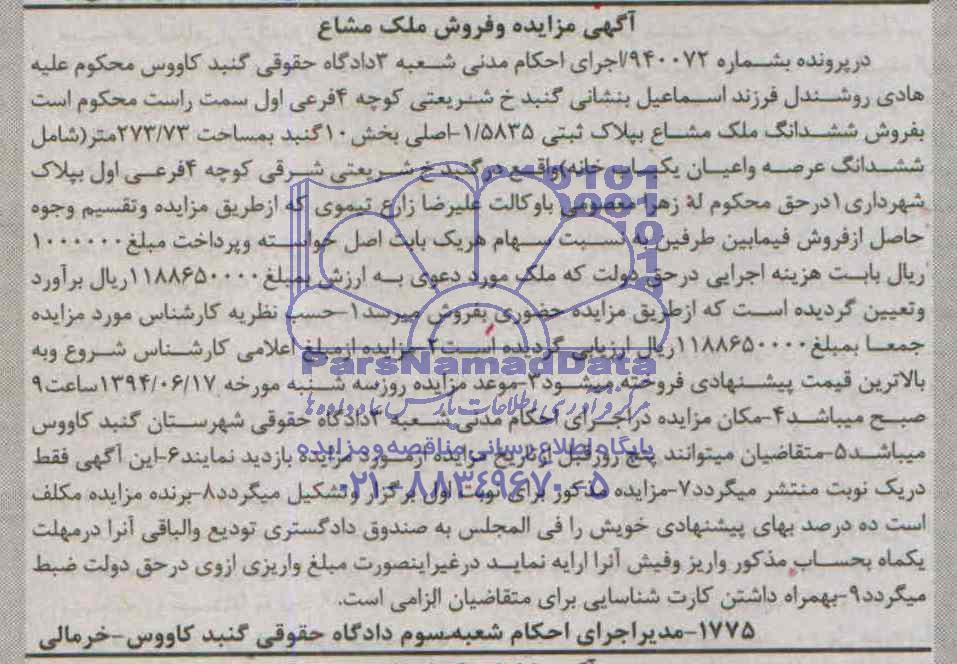 آگهی مزایده وفروش ملک مشاع
درپرونده بشماره ۹۴۰۰۷۲/اجرای احکام مدنی شعبه ۳دادگاه حقوقی گنبد کاووس محکوم علیه
هادی روشندل فرزند اسماعیل بنشانی گنبد خ شریعتی کوچه ۴فرعی اول سمت راست محکوم است
بفروش ششدانگ ملک مشاع بپلاک ثبتی ۱/۵۸۳۵-اصلی بخش ۱۰گنبد بمساحت ۲۷۳/۷۳متر(شامل
ششدانگ عرصه واعیان یکباب خانه)واقع درگنبد خ شریعتی شرقی کوچه ۴فرعی اول بپلاک
شهرداری۱درحق محکوم له زهرا معصومی باوکالت علیرضا زارع تیموی که ازطریق مزایده وتقسیم وجوه
حاصل ازفروش فیمابین طرفین به نسبت سهام هریک بابت اصل خواسته وپرداخت مبلغ ۱۰۰۰۰۰۰
ریال بابت هزینه اجرایی درحق دولت که ملک مورد دعوی به ارزش بمبلغ ۱۱۸۸۶۵۰۰۰۰ریال برآورد
وتعیین گردیده است که ازطریق مزایده حضوری بفروش میرسد۱-حسب نظریه کارشناس مورد مزایده
جمعا بمبلغ ۱۱۸۸۶۵۰۰۰۰ریال ارزیابی گردیده است۲-مزایده ازمبلغ اعلامی کارشناس شروع وبه
ParsNamadData
بالاترین قیمت پیشنهادی فروخته میشود۳-موعد مزایده روزسه شنبه مورخه ۱۳۹۴/۰۶/۱۷ساعت۹
مرکز فرآوری اطلاعات پارس نماد داده ها
صبح میباشد۴-مکان مزایده دراجرای احکام مدنی شعبه ۳دادگاه حقوقی شهرستان گنبد کاووس
پایگاه اطلاع رسانی مناقصه و مزایده
میباشد۵-متقاضیان میتوانند پنج روزقبل ازتاریخ مزایده ازمورد مزایده بازدید نمایند۶-این آگهی فقط
۰۲۱-۸۸۳۴۹۶۷۰-۵
دریک نوبت منتشر میگردد۷-مزایده مذکور برای نوبت اول برگزار وتشکیل میگردد۸-برنده مزایده مکلف
است ده درصد بهای پیشنهادی خویش را فی المجلس به صندوق دادگستری تودیع والباقی آنرا درمهلت
یکماه بحساب مذکور واریز وفیش آنرا ارایه نماید درغیراینصورت مبلغ واریزی ازوی درحق دولت ضبط
میگردد۹-بهمراه داشتن کارت شناسایی برای متقاضیان الزامی است.
۱۷۷۵-مدیراجرای احکام شعبه سوم دادگاه حقوقی گنبد کاووس-خرمالی